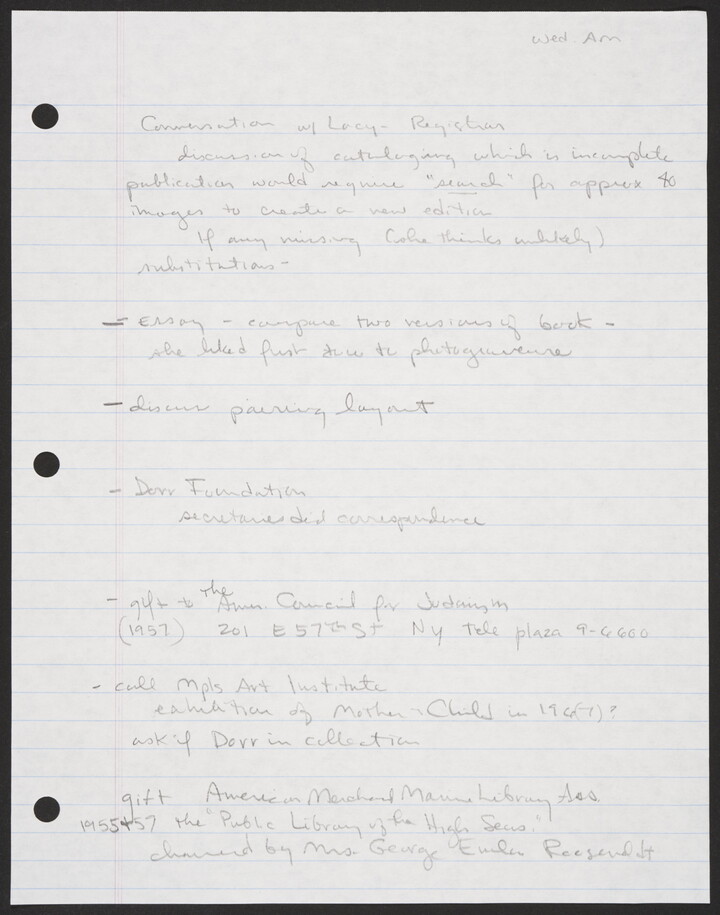 Wed. Am
Conversation w/ Lacy - Registrar
discussion of cataloging which is incomplete
publication would require "search" for approx 80
images to create a new edition
If any missing (she thinks unlikely)
substitutions -
= Essay - compare two versions of book -
she liked first due to photogravure
- discuss pairing layout
- Dorr Foundation
secretaries did correspondence
- gift to The Amer. Council for Judaism
(1957) 201 E 57th St NY Tele plaza 9-6600
- call Mpls Art Institute
exhibition of Mother + Child in 196(7)?
ask if Dorr in collection
gift American Merchant Marine Library Ass.
1955+57 the "Public Library of the High Seas."
chaired by Mrs. George Emlen Roosevelt